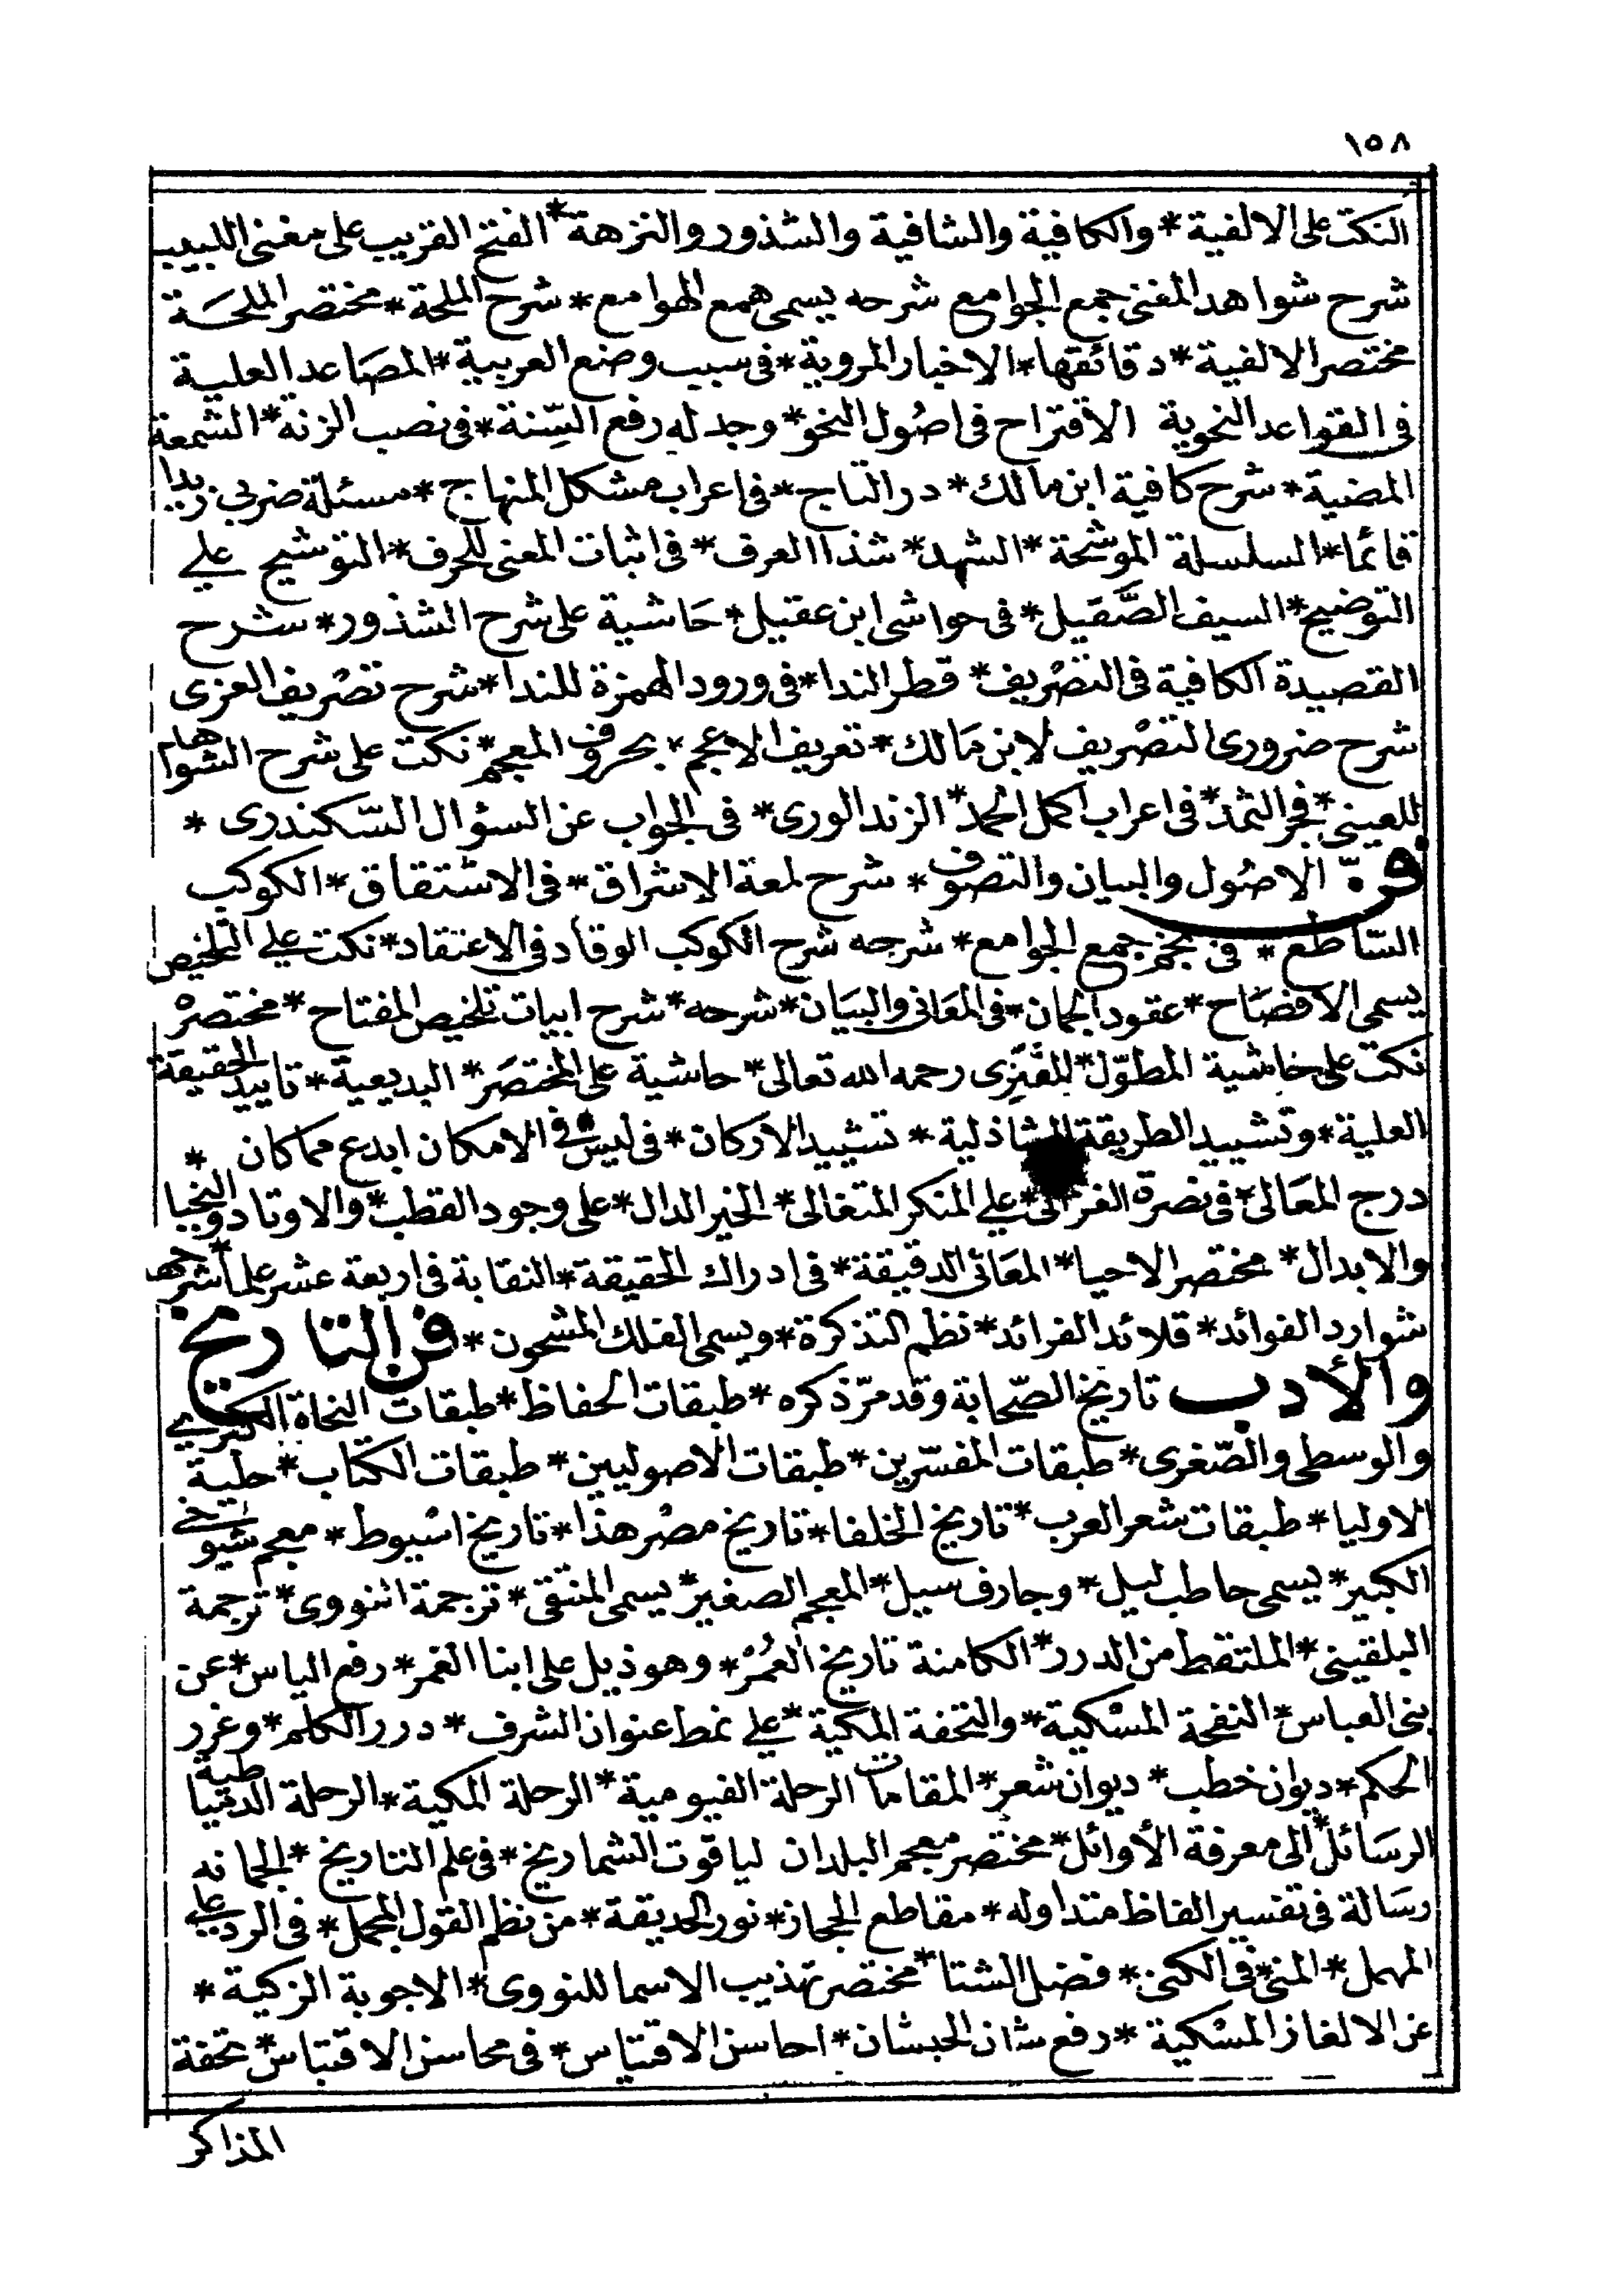 ١٥٨
النكت على الالفية * والكافية والشافية والشذور والنزهة * الفتح القريب على مغنى اللبيب
شرح شواهد المغنى جمع الجوامع شرحه يسمى همع الهوامع * شرح الملحة * مختصر الملحَـة
مختصر الالفية * دقائقها * الاخبار المروية * فى سبب وضع العربية * المصَاعد العلية
فى القواعد النحوية الاقتراح فى اصُول النحو * وجدله رفع السِّنة * فى نصب الزنة * الشمعة
المضية * شرح كافية ابن مالك * در التاج * فى اعراب مشكل المنهاج * مسئلة ضربى زيدا
قائما * السلسلة الموشحة * الشهد * شذا العرف * فى اثبات المعنى للحرف * التوشيح على
التوضيح * السيف الصَّقيل * فى حواشى ابن عقيل * حَاشية على شرح الشذور * شرح
القصيدة الكافية فى التصْريف * قطر الندا * فى ورود الهمزة للندا * شرح تصْريف العزى
شرح ضرورى التصْريف لابن مَالك * تعريف الاعجم * بحروف المعجم * نكت على شرح الشواهد
للعينى * فجر الثمد * فى اعراب اكمل الحمد * الزند الورى * فى الجواب عن السؤال السّكندرى *
فن الاصُول والبيان والتصوف * شرح لمعة الاشراق * فى الاشتقاق * الكوكب
السّاطع * فى نظم جمع الجوامع * شرحه شرح الكوكب الوقاد فى الاعتقاد * نكت على التلخيص
يسمى الافصَاح * عقود الجمان * فى المعَانى والبيَان * شرحه * شرح ابيات تلخيص المفتاح * مختصرهْ
نكت على حاشية المطوّل * للفنرِى رحمه الله تعالى * حاشية على المختصَر * البديعية * تاييد الحقيقة
العلية * وتشييد الطريقة الشاذلية * تشييد الاركان * فى ليس فى الامكان ابدع مماكان *
درج المعَالى * فى نصرة الغزالى * على المنكر المتغالى * الخبر الدال * على وجود القطب * والاوتاد والنجبا
والابدال * مختصر الاحيا * المعَانى الدقيقة * فى ادراك الحقيقة * النقابة فى اربعة عشر علما * شرحها
شوارد الفوائد * قلائد الفرائد * نظم التذكرة * ويسمى الفلك المشحون * فن التاريخ
والأدب تاريخ الصّحابة وقد مرّ ذكره * طبقات الحفاظ * طبقات النحاة الكبرى
والوسطى والصّغرى * طبقات المفسّرين * طبقات الاصوليين * طبقات الكتاب * حلية
الاوليا * طبقات شعر العرب * تاريخ الخلفا * تاريخ مصْر هذا * تاريخ اسْيوط * معجم شيوخى
الكبير * يسمى حاطب ليل * وجارف سيل * المعجم الصغير * يسمى المنتقى * ترجمة النووى * ترجمة
البلقينى * الملتقط من الدرر * الكامنة تاريخ العُمْر * وهو ذيل على ابنا الغمر * رفع الباس * عن
بنى العباس * النفحة المسْكية * والتحفة المكية * على نمط عنوان الشرف * درر الكلم * وغرر
الحكم * ديوان خطب * ديوان شعر * المقامات الرحلة الفيومية * الرحلة المكية * الرحلة الدمياطية
الرسَائل * الى معرفة الأوائل * مختصر معجم البلدان لياقوت الشماريخ * فى علم التاريخ * الجمانه
رسَالة فى تفسير الفاظ متداوله * مقاطع الحجاز * نور الحديقة * من نظم القول المجمل * فى الرد على
المهمل * المنى * فى الكنى * فضل الشتا * مختصر تهذيب الاسما للنووى * الاجوبة الزكية *
عن الالغاز المسْكية * رفع شان الحبشان * احاسن الاقتباس * فى محاسن الاقتباس * تحفة
المذاكر